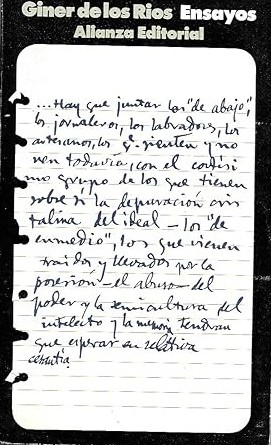 Giner de los Ríos Ensayos
Alianza Editorial
...Hay que juntar los "de abajo",
los jornaleros, los labradores, los
artesanos, los q. sienten y no
ven todavía, con el cortísi
mo grupo de los que tienen
sobre sí la depuración cris
talina del ideal — los "de
enmedio", los que vienen
traídos y llevados por la
posesión — el abuso — del
poder y la semicultura del
intelecto y la memoria tendrán
que esperar en relativa
cesantía.